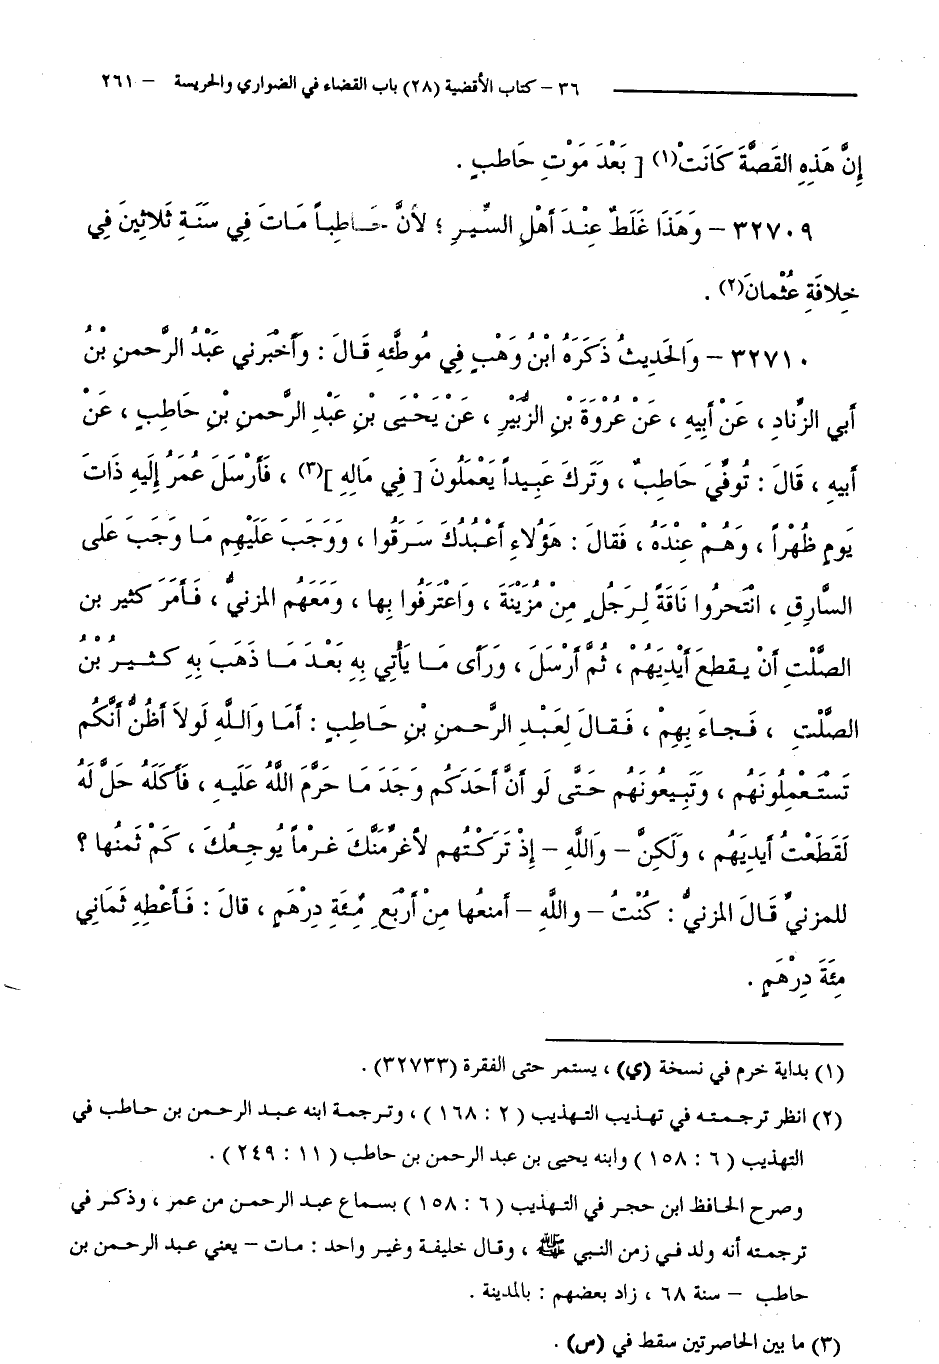 ٣٦ – كتاب الأقضية (٢٨) باب القضاء في الضواري والحريسة – ٢٦١
إِنَّ هَذِهِ القَصَّةَ كَانَتْ(١) [ بَعْدَ مَوْتِ حَاطبٍ .
٣٢٧٠٩ – وَهَذَا غَلَطٌ عِنْدَ أَهْلِ السِّيَرِ ؛ لأَنَّ حَاطِباً مَاتَ فِي سَنَةِ ثَلاثِينَ فِي
خِلافَةِ عُثْمانَ(٢) .
٣٢٧١٠ – وَالحَدِيثُ ذَكَرَهُ ابْنُ وَهْبٍ فِي مُوطَّئِهِ قَالَ : وَأَخْبَرنِي عَبْدُ الرَّحمنِ بْنُ
أَبي الزِّنادِ ، عَنْ أَبِيهِ ، عَنْ عُرْوَةَ بْنِ الزُّبَيْرِ ، عَنْ يَحْيَى بْنِ عَبْدِ الرَّحمنِ بْنِ حَاطِبٍ ، عَنْ
أَبيهِ ، قَالَ : تُوفِّيَ حَاطِبٌ ، وَتَركَ عَبِيداً يَعْمَلُونَ [ فِي مَالِهِ ](٣) ، فَأَرْسَلَ عُمَرُ إِلَيهِ ذَاتَ
يَومٍ ظُهْراً ، وَهُمْ عِنْدَهُ ، فَقالَ : هَؤُلاءِ أَعْبُدُكَ سَرَقُوا ، وَوَجَبَ عَلَيْهِم مَا وَجَبَ عَلى
السَّارِقِ ، انْتَحرُوا نَاقَةً لِرَجُلٍ مِنْ مُزَيْنَةَ ، وَاعْتَرفُوا بِها ، وَمَعَهُم المزنيُّ ، فَأَمَرَ كَثير بن
الصَّلْتِ أَنْ يقطعَ أَيْدِيَهُمْ ، ثُمَّ أَرْسَلَ ، وَرَأَى مَا يَأْتِي بِهِ بَعْدَ مَا ذَهَبَ بِهِ كَثِيرُ بْنُ
الصَّلْتِ ، فَجاءَ بِهِمْ ، فَقالَ لِعَبْدِ الرَّحمنِ بْنِ حَاطِبٍ : أَمَا وَاللَّهِ لَولاَ أَظُنُّ أَنَّكُم
تَسْتَعْمِلُونَهُم ، وَتَبِيعُونَهُم حَتَّى لَو أَنَّ أَحَدَكُم وَجَدَ مَا حَرَّمَ اللَّهُ عَلَيهِ ، فَأَكَلَهُ حَلَّ لَهُ
لَقَطَعْتُ أَيدِيَهُم ، ولَكِنَّ – وَاللَّهِ – إِذْ تَرَكْتُهم لأُغرِّمَنَّكَ غرْماً يُوجِعُكَ ، كَمْ ثَمنُها ؟
للمزنيِّ قَالَ المزنيُّ : كُنْتُ – واللَّهِ – أمنعُها مِنْ أَرْبَعِ مِئَةِ دِرْهَمٍ ، قالَ : فَأَعْطِهِ ثَمانِي
مِئَةَ دِرْهَمٍ .
(١) بداية خرم في نسخة (ي) ، يستمر حتى الفقرة (٣٢٧٣٣) .
(٢) انظر ترجمته في تهذيب التهذيب ( ٢ : ١٦٨ ) ، وترجمة ابنه عبد الرحمن بن حاطب في
التهذيب ( ٦ : ١٥٨ ) وابنه يحيى بن عبد الرحمن بن حاطب ( ١١ : ٢٤٩ ) .
وصرح الحافظ ابن حجر في التهذيب ( ٦ : ١٥٨ ) بسماع عبد الرحمن من عمر ، وذكر في
ترجمته أنه ولد في زمن النبي ﷺ ، وقال خليفة وغير واحد : مات – يعني عبد الرحمن بن
حاطب – سنة ٦٨ ، زاد بعضهم : بالمدينة .
(٣) ما بين الحاصرتين سقط في (س) .